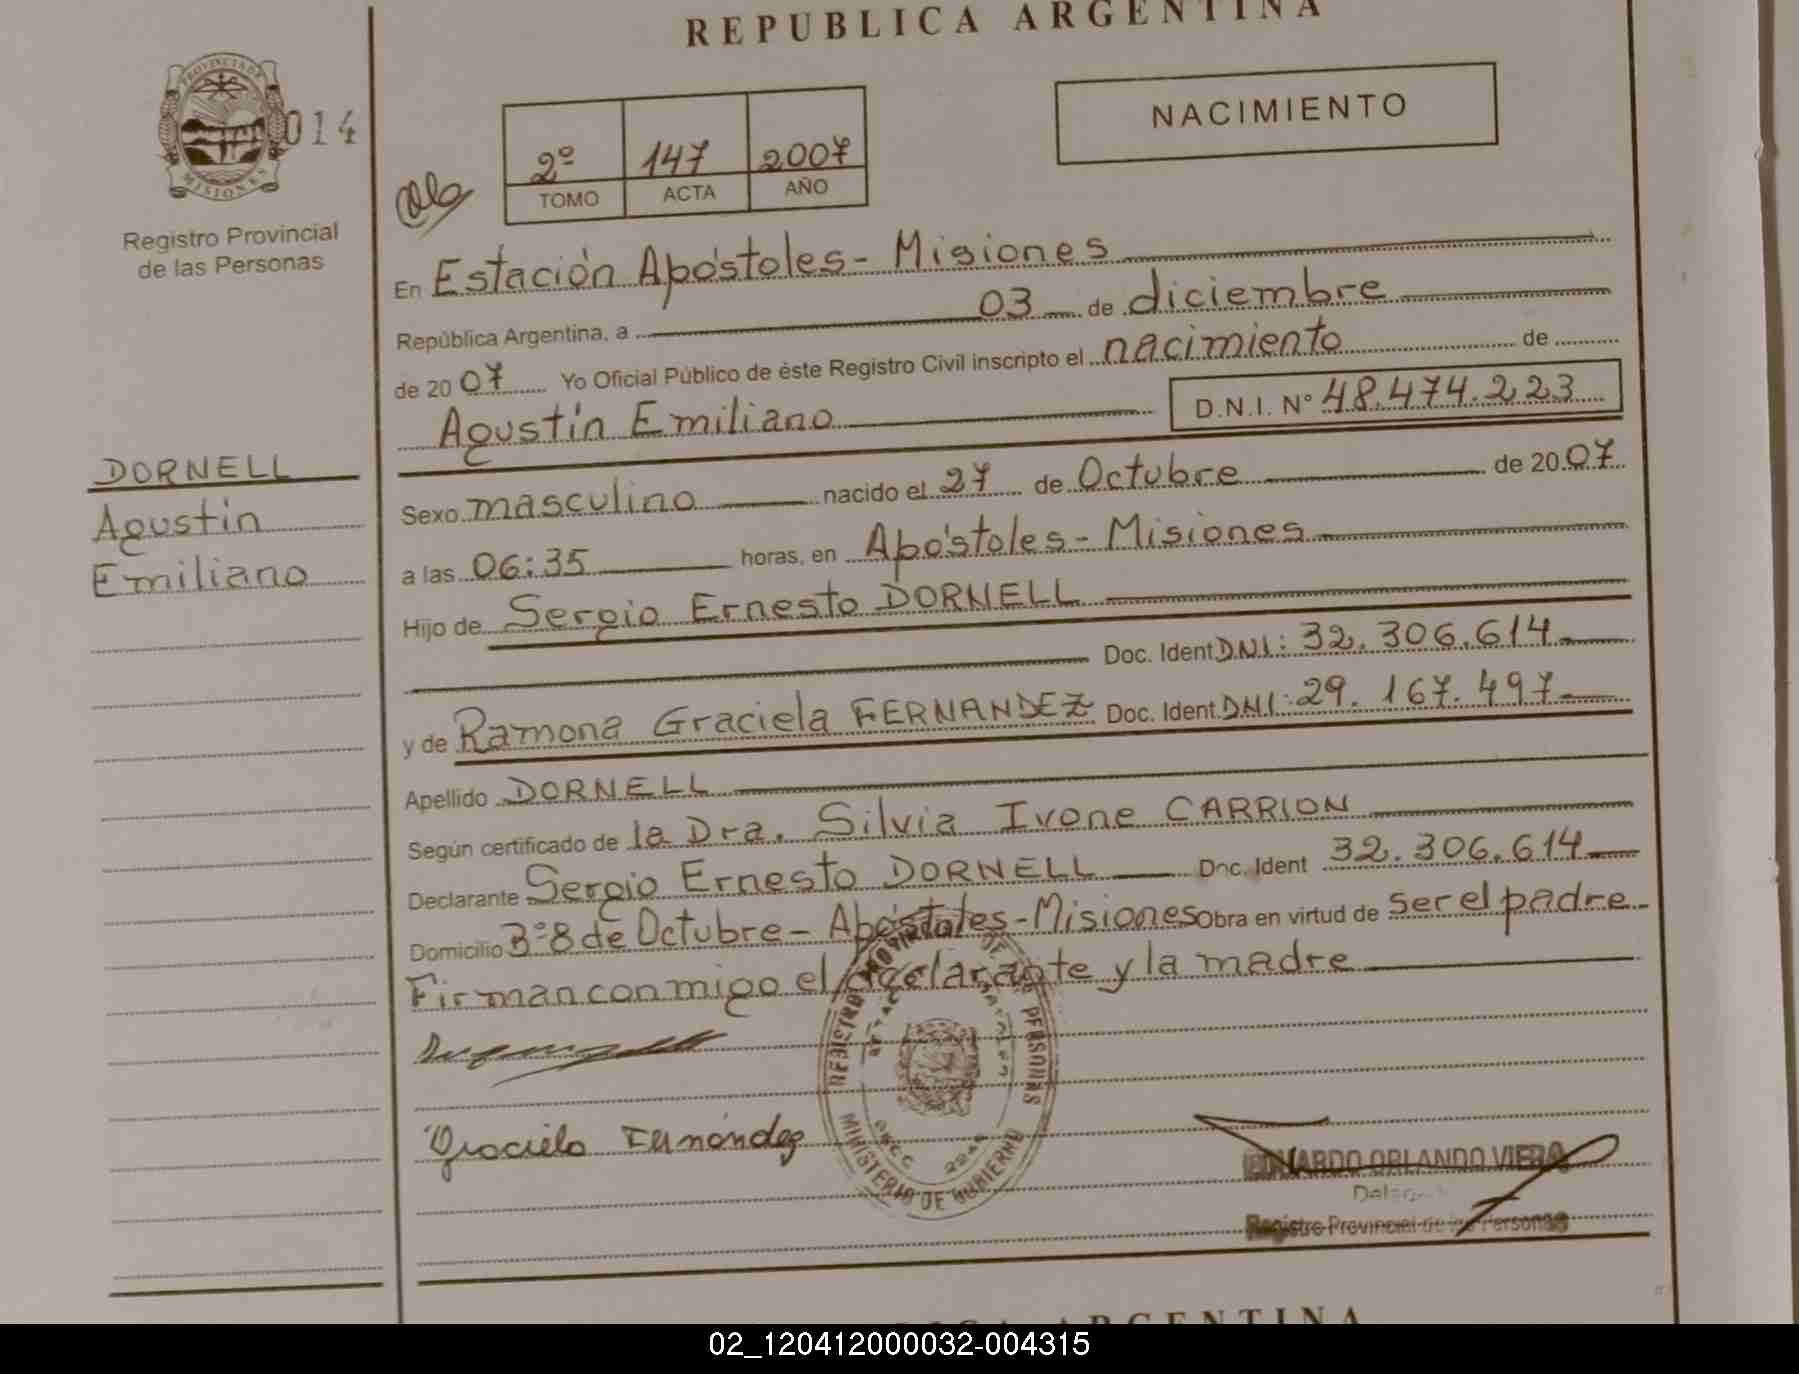 REPUBLICA ARGENTINA
PROVINCIA DE
MISIONES
014
Registro Provincial
de las Personas
NACIMIENTO
2º 147 2007
TOMO ACTA AÑO
En Estación Apóstoles - Misiones
República Argentina, a 03 de diciembre
de 2007 Yo Oficial Público de éste Registro Civil inscripto el nacimiento de
Agustín Emiliano D.N.I. Nº 48.474.223
DORNELL
Agustín
Emiliano
Sexo masculino nacido el 27 de Octubre de 2007
a las 06:35 horas, en Apóstoles - Misiones
Hijo de Sergio Ernesto DORNELL
Doc. Ident DNI: 32.306.614
y de Ramona Graciela FERNANDEZ Doc. Ident. DNI: 29.167.497
Apellido DORNELL
Según certificado de la Dra. Silvia Ivone CARRION
Declarante Sergio Ernesto DORNELL Doc. Ident 32.306.614
Domicilio Bº 8 de Octubre - Apóstoles - Misiones Obra en virtud de ser el padre
Firman conmigo el declarante y la madre
Graciela Fernández
REGISTRO PROVINCIAL DE LAS PERSONAS
MINISTERIO DE GOBIERNO
EDUARDO ORLANDO VIERA
Registro Provincial de las Personas
ARGENTINA
02_120412000032-004315